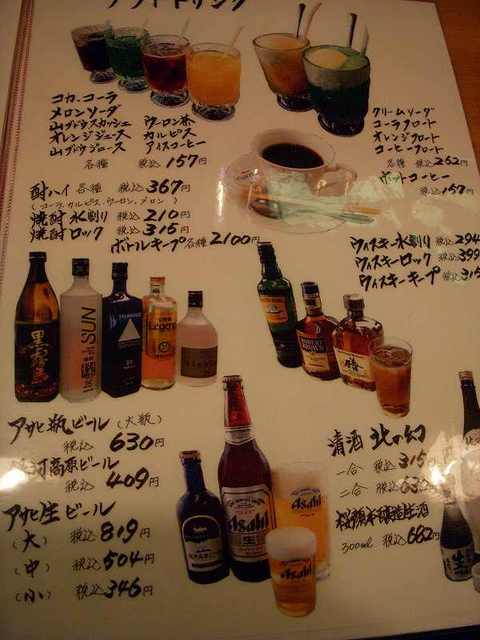 コカ・コーラ
メロンソーダ
山ブドウスカッシュ
オレンジジュース
山ブドウジュース
ウーロン茶
カルピス
アイスコーヒー
各種 税込 157円
クリームソーダ
コーラフロート
オレンジフロート
コーヒーフロート
各種 税込 262円
ホットコーヒー
税込 157円
酎ハイ 各種 税込 367円
(コーラ、カルピス、ウーロン、メロン)
焼酎 水割り 税込 210円
焼酎 ロック 税込 315円
ボトルキープ 各種 2100円
ウィスキー水割り 税込 294
ウィスキーロック 税込 399
ウィスキーキープ 税込 315
SUN
Legend
アサヒ瓶ビール (大瓶)
税込 630円
河高原ビール
税込 409円
アサヒ生ビール
(大) 税込 819円
(中) 税込 504円
(小) 税込 346円
Asahi
生
Asahi
Asahi
清酒 北の幻
一合 税込 315円
二合 税込
本醸造生酒
300ml 税込 682円
生